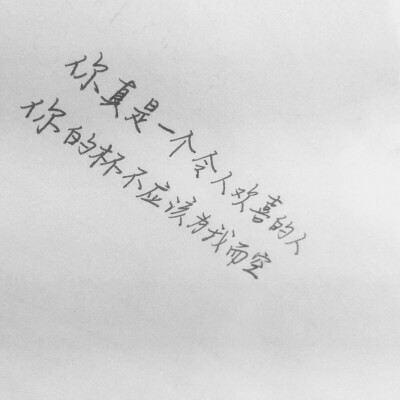 你真是一个令人欢喜的人
你的杯不应该为我而空